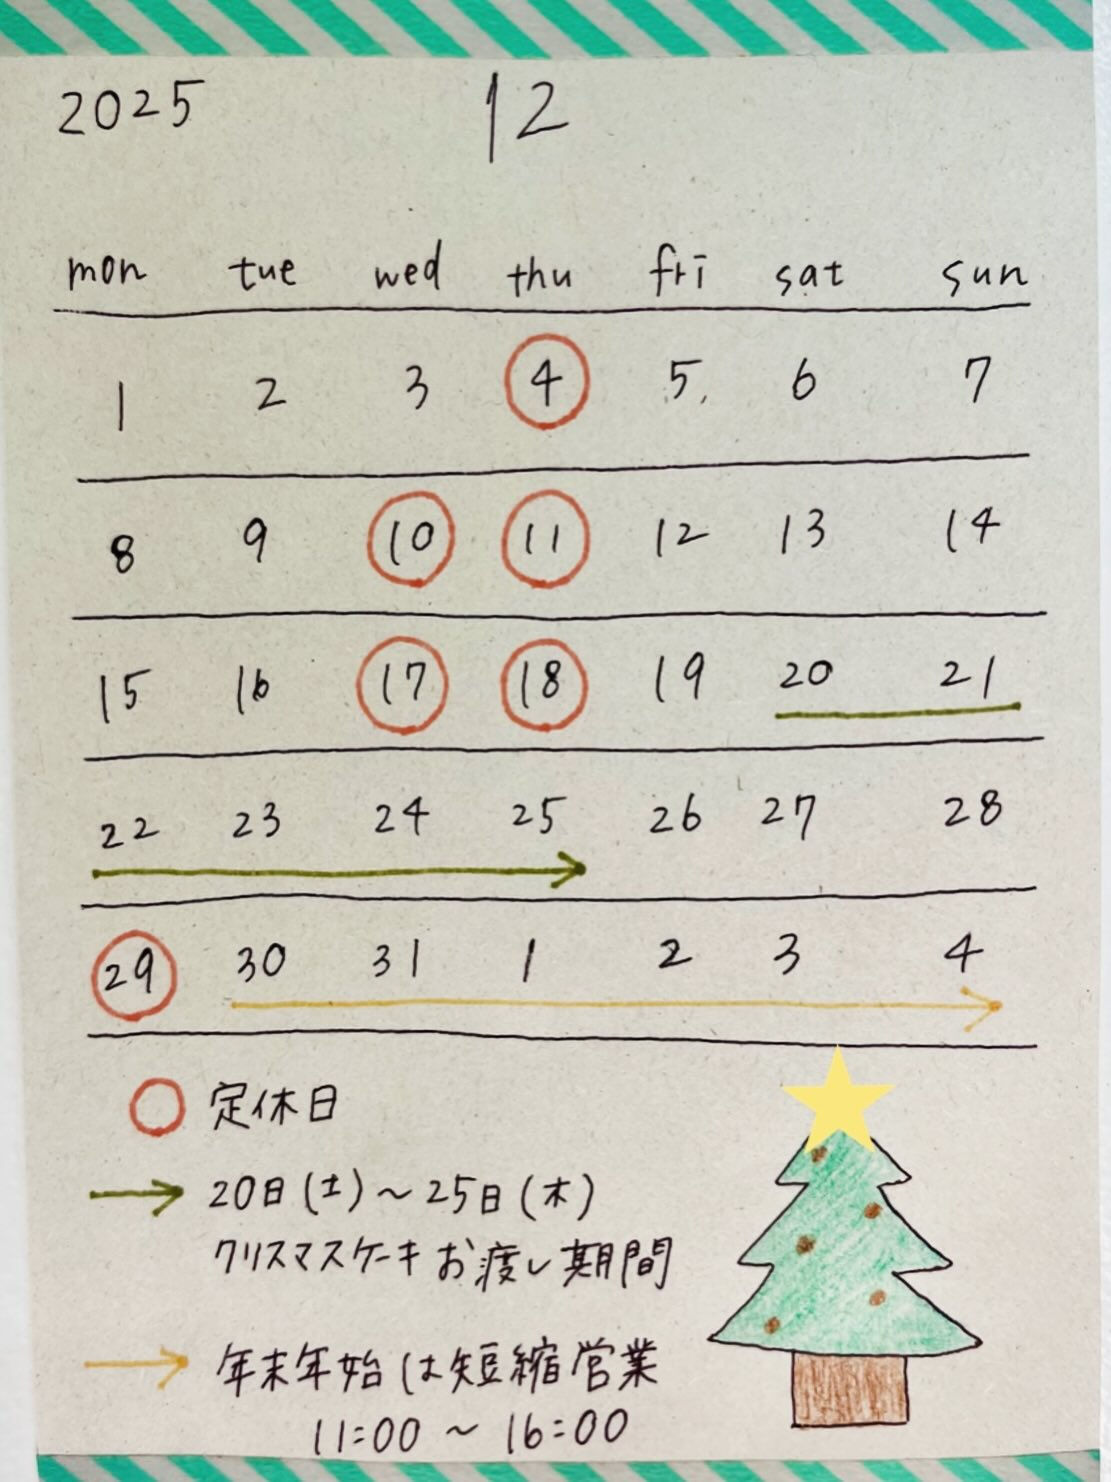 2025 12
mon tue wed thu fri sat sun
1 2 3 4 5 6 7
8 9 10 11 12 13 14
15 16 17 18 19 20 21
22 23 24 25 26 27 28
29 30 31 1 2 3 4
定休日
20日(土)～25日(木)
クリスマスケーキお渡し期間
年末年始は短縮営業
11:00～16:00